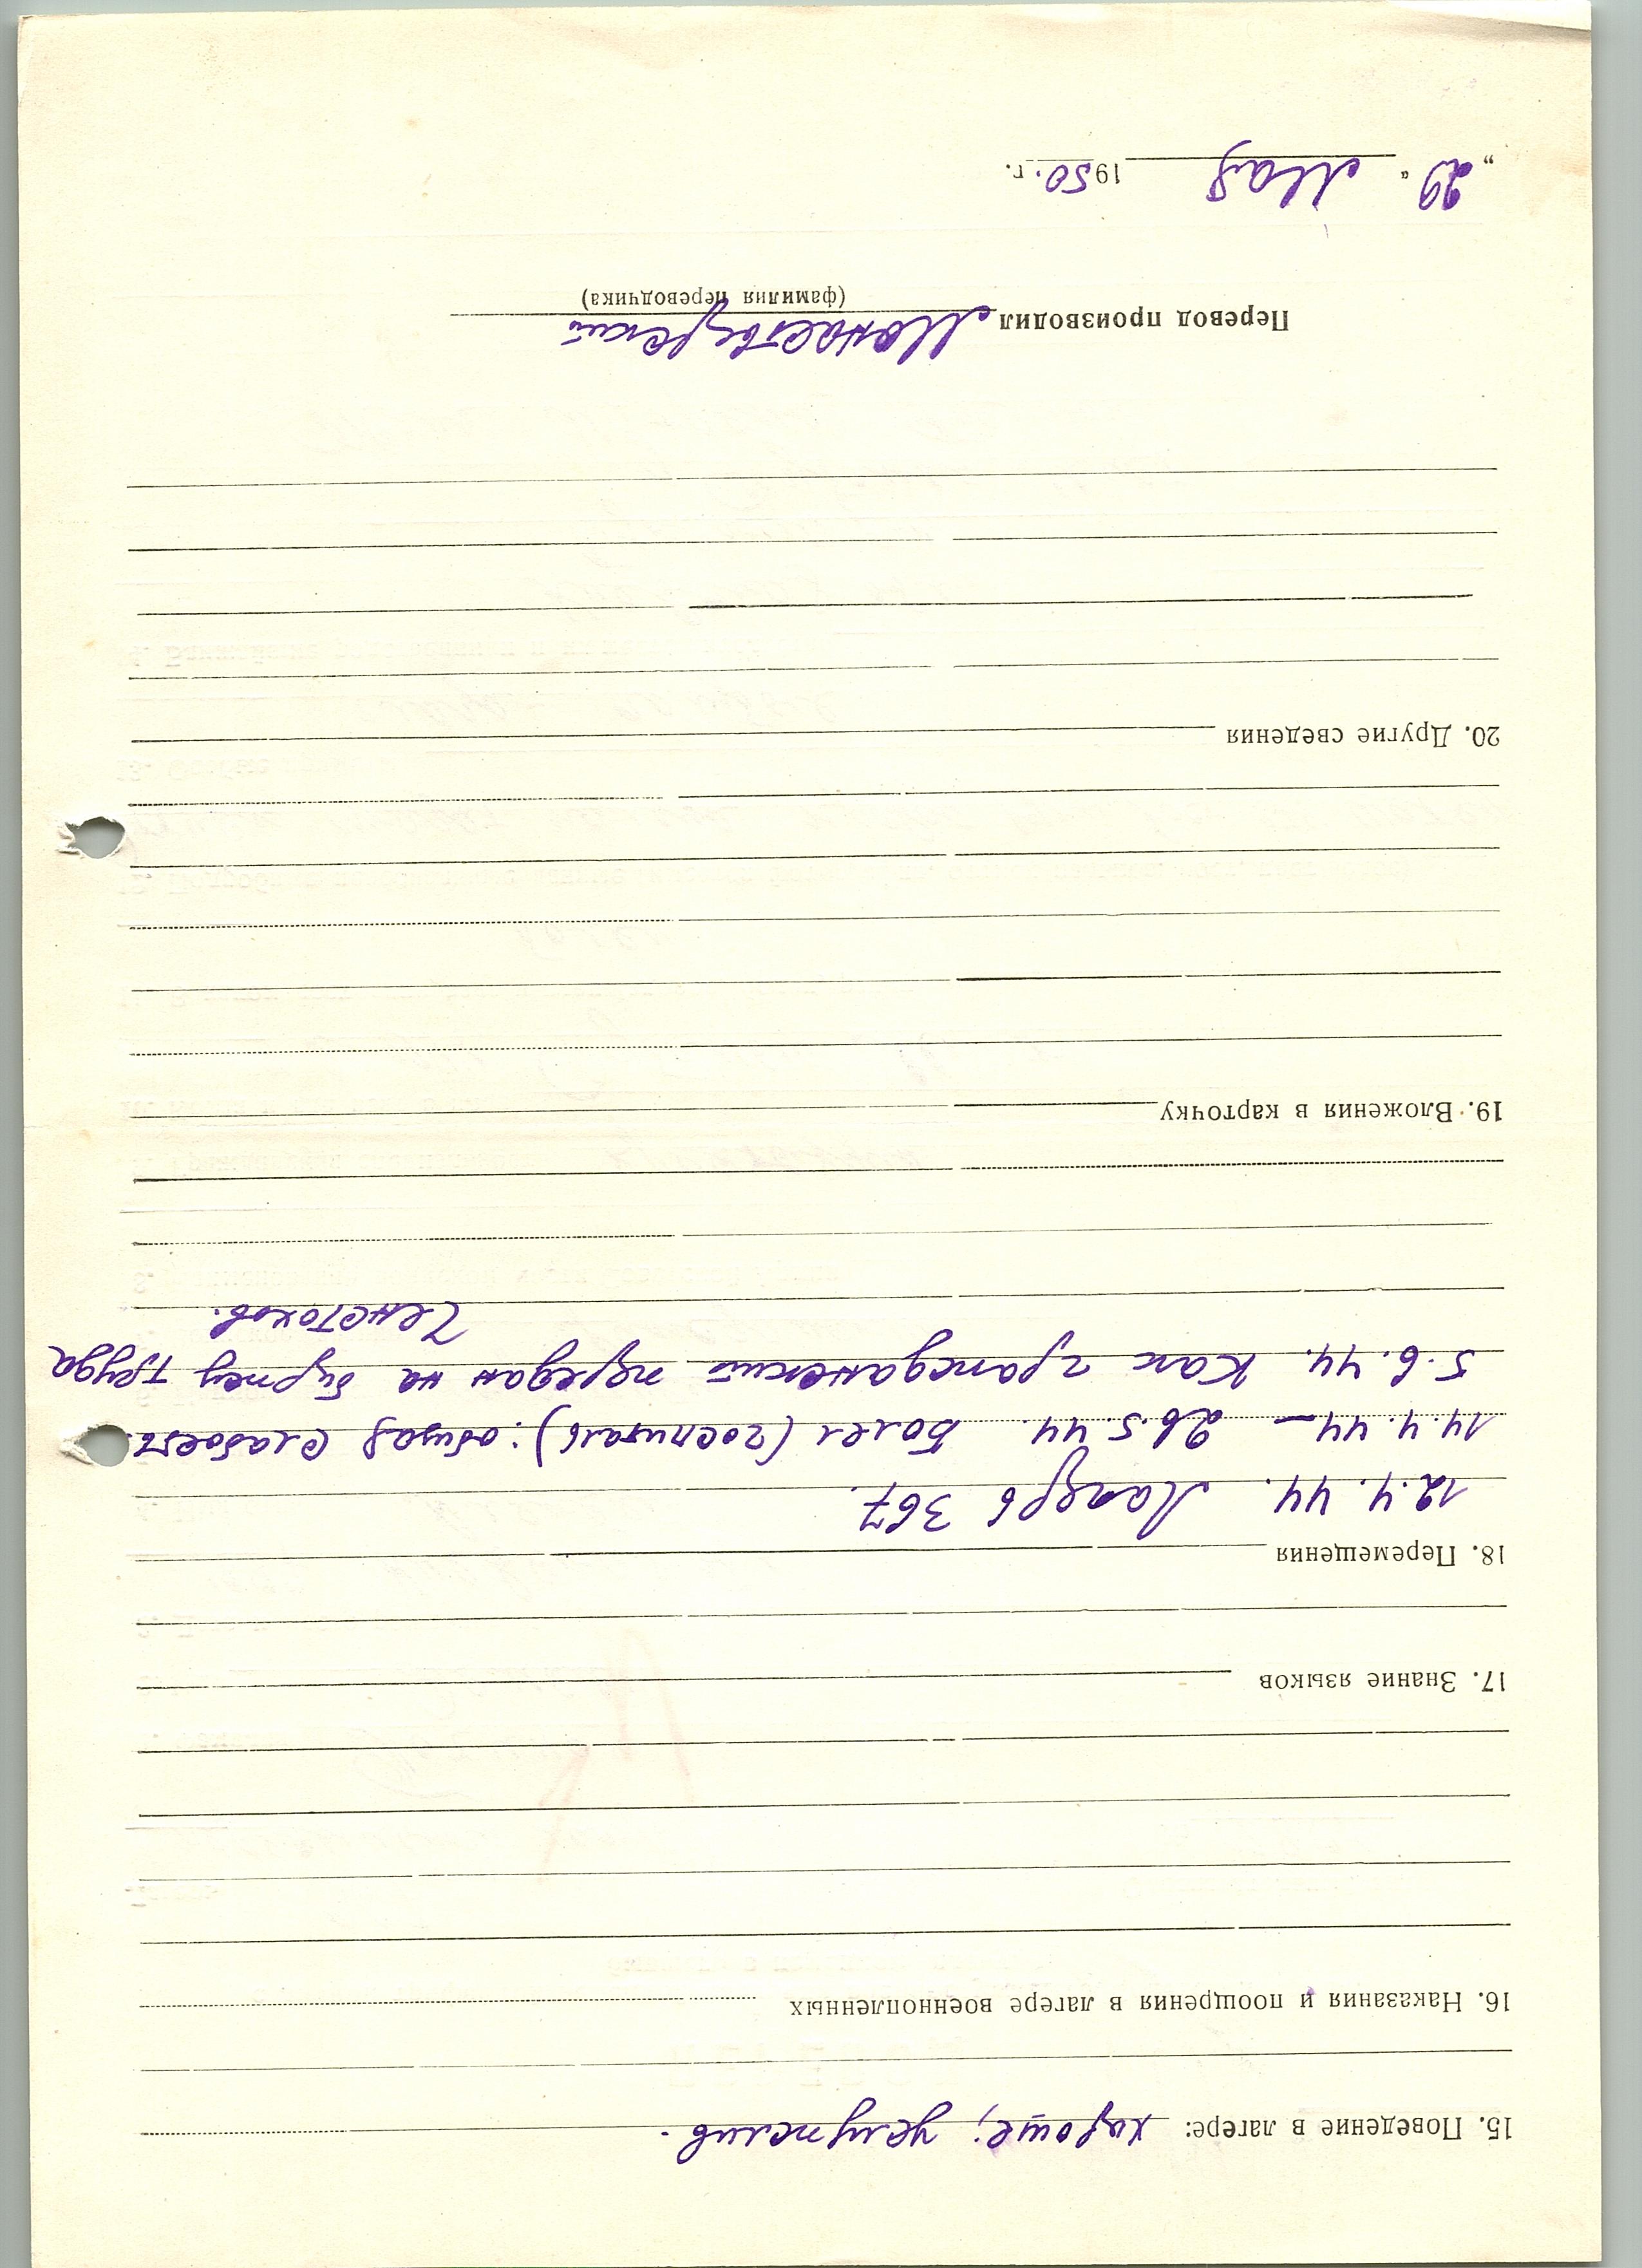 15. Поведение в лагере: хороше; услужлив.
16. Наказания и поощрения в лагере военнопленных
17. Знание языков
18. Перемещения
12.4.44. Лагерь 367.
14.4.44 – 26.5.44. Болел (госпиталь): общая слабость
5.6.44. Как гражданский передан на биржу труда
Ченстохов.
19. Вложения в карточку
20. Другие сведения
Перевод производил Монастырский
(фамилия переводчика)
„29“ Мая 1950.г.